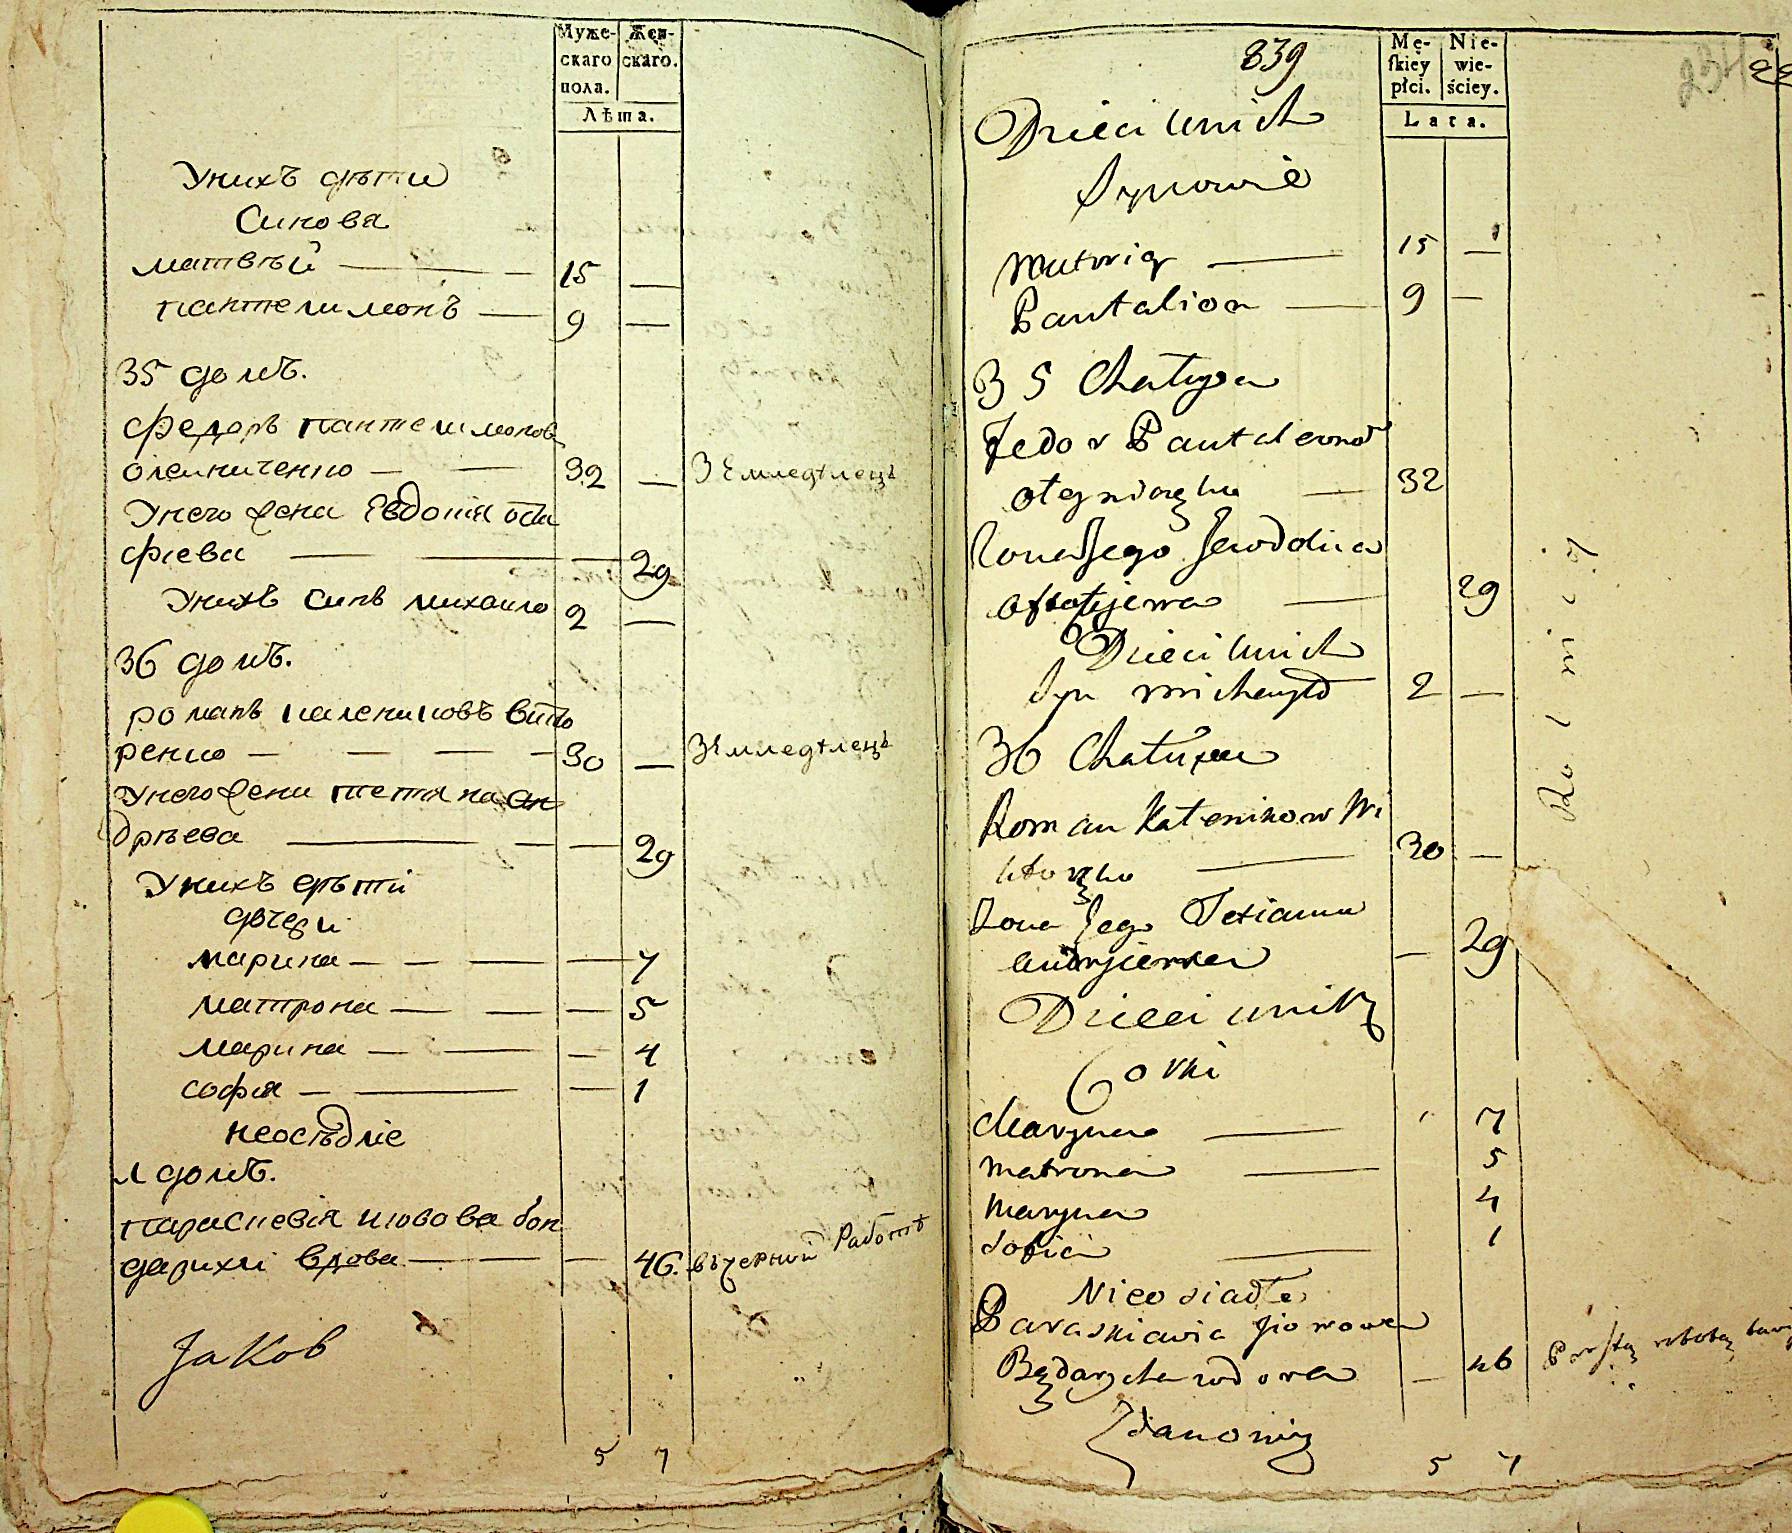 Муже-
скаго
пола.
Жен-
скаго.
Лѣта.
Унихъ дѣти
Синова
матвѣй — 15 —
пантелимонъ — 9 —
35 домъ.
федоръ пантелимонов
олеиниченко — 32 — Землєдѣлецъ
Унего жена Евдокия оста
фиева — 29
Унихъ синъ михаило 2 —
36 домъ.
романъ калениковъ вихто
ренко — 30 — Землєдѣлецъ
Унего жена тетяна ан
дрѣева — 29
Унихъ дѣти
дочери
марина — 7
матрона — 5
марина — 4
софия — 1
неосѣдліе
1 домъ.
параскевія иовова бон
дариха вдова — 46. въчерной Работѣ
Jakob
5 7
839
234
Mę-
skiey
płci.
Nie-
wie-
ściey.
Lata.
Dzieci unich
Synowie
Matwiy — 15 —
Pantalion — 9 —
35 Chatupa
Fedor Pantaleonow
oleyniczenko — 32
Zona Jego Jewdokia
ostafijewa — 29
Dzieci unich
Syn michayło 2 —
36 Chatupa
Roman Kalenikow Wi
chtorenko — 30 —
Zona Jego Tetianna
andryiewa — 29
Dzieci unich
Corki
Maryna — 7
matrona — 5
Maryna 4
Sofia — 1
Nieosiadłe
Paraskiewia Jiowowa
Bądarycha wdowa — 46 Prostą robotą baw
Zdanowicz
5 7
Rolnicy